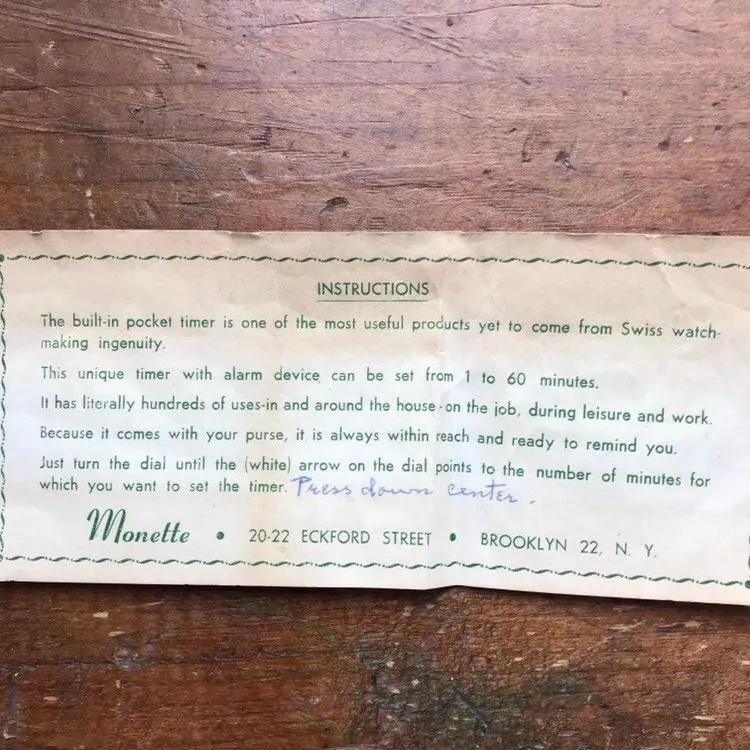 INSTRUCTIONS
The built-in pocket timer is one of the most useful products yet to come from Swiss watch-
making ingenuity.
This unique timer with alarm device can be set from 1 to 60 minutes.
It has literally hundreds of uses-in and around the house-on the job, during leisure and work.
Because it comes with your purse, it is always within reach and ready to remind you.
Just turn the dial until the (white) arrow on the dial points to the number of minutes for
which you want to set the timer. Press down center.
Monette • 20-22 ECKFORD STREET • BROOKLYN 22, N. Y.